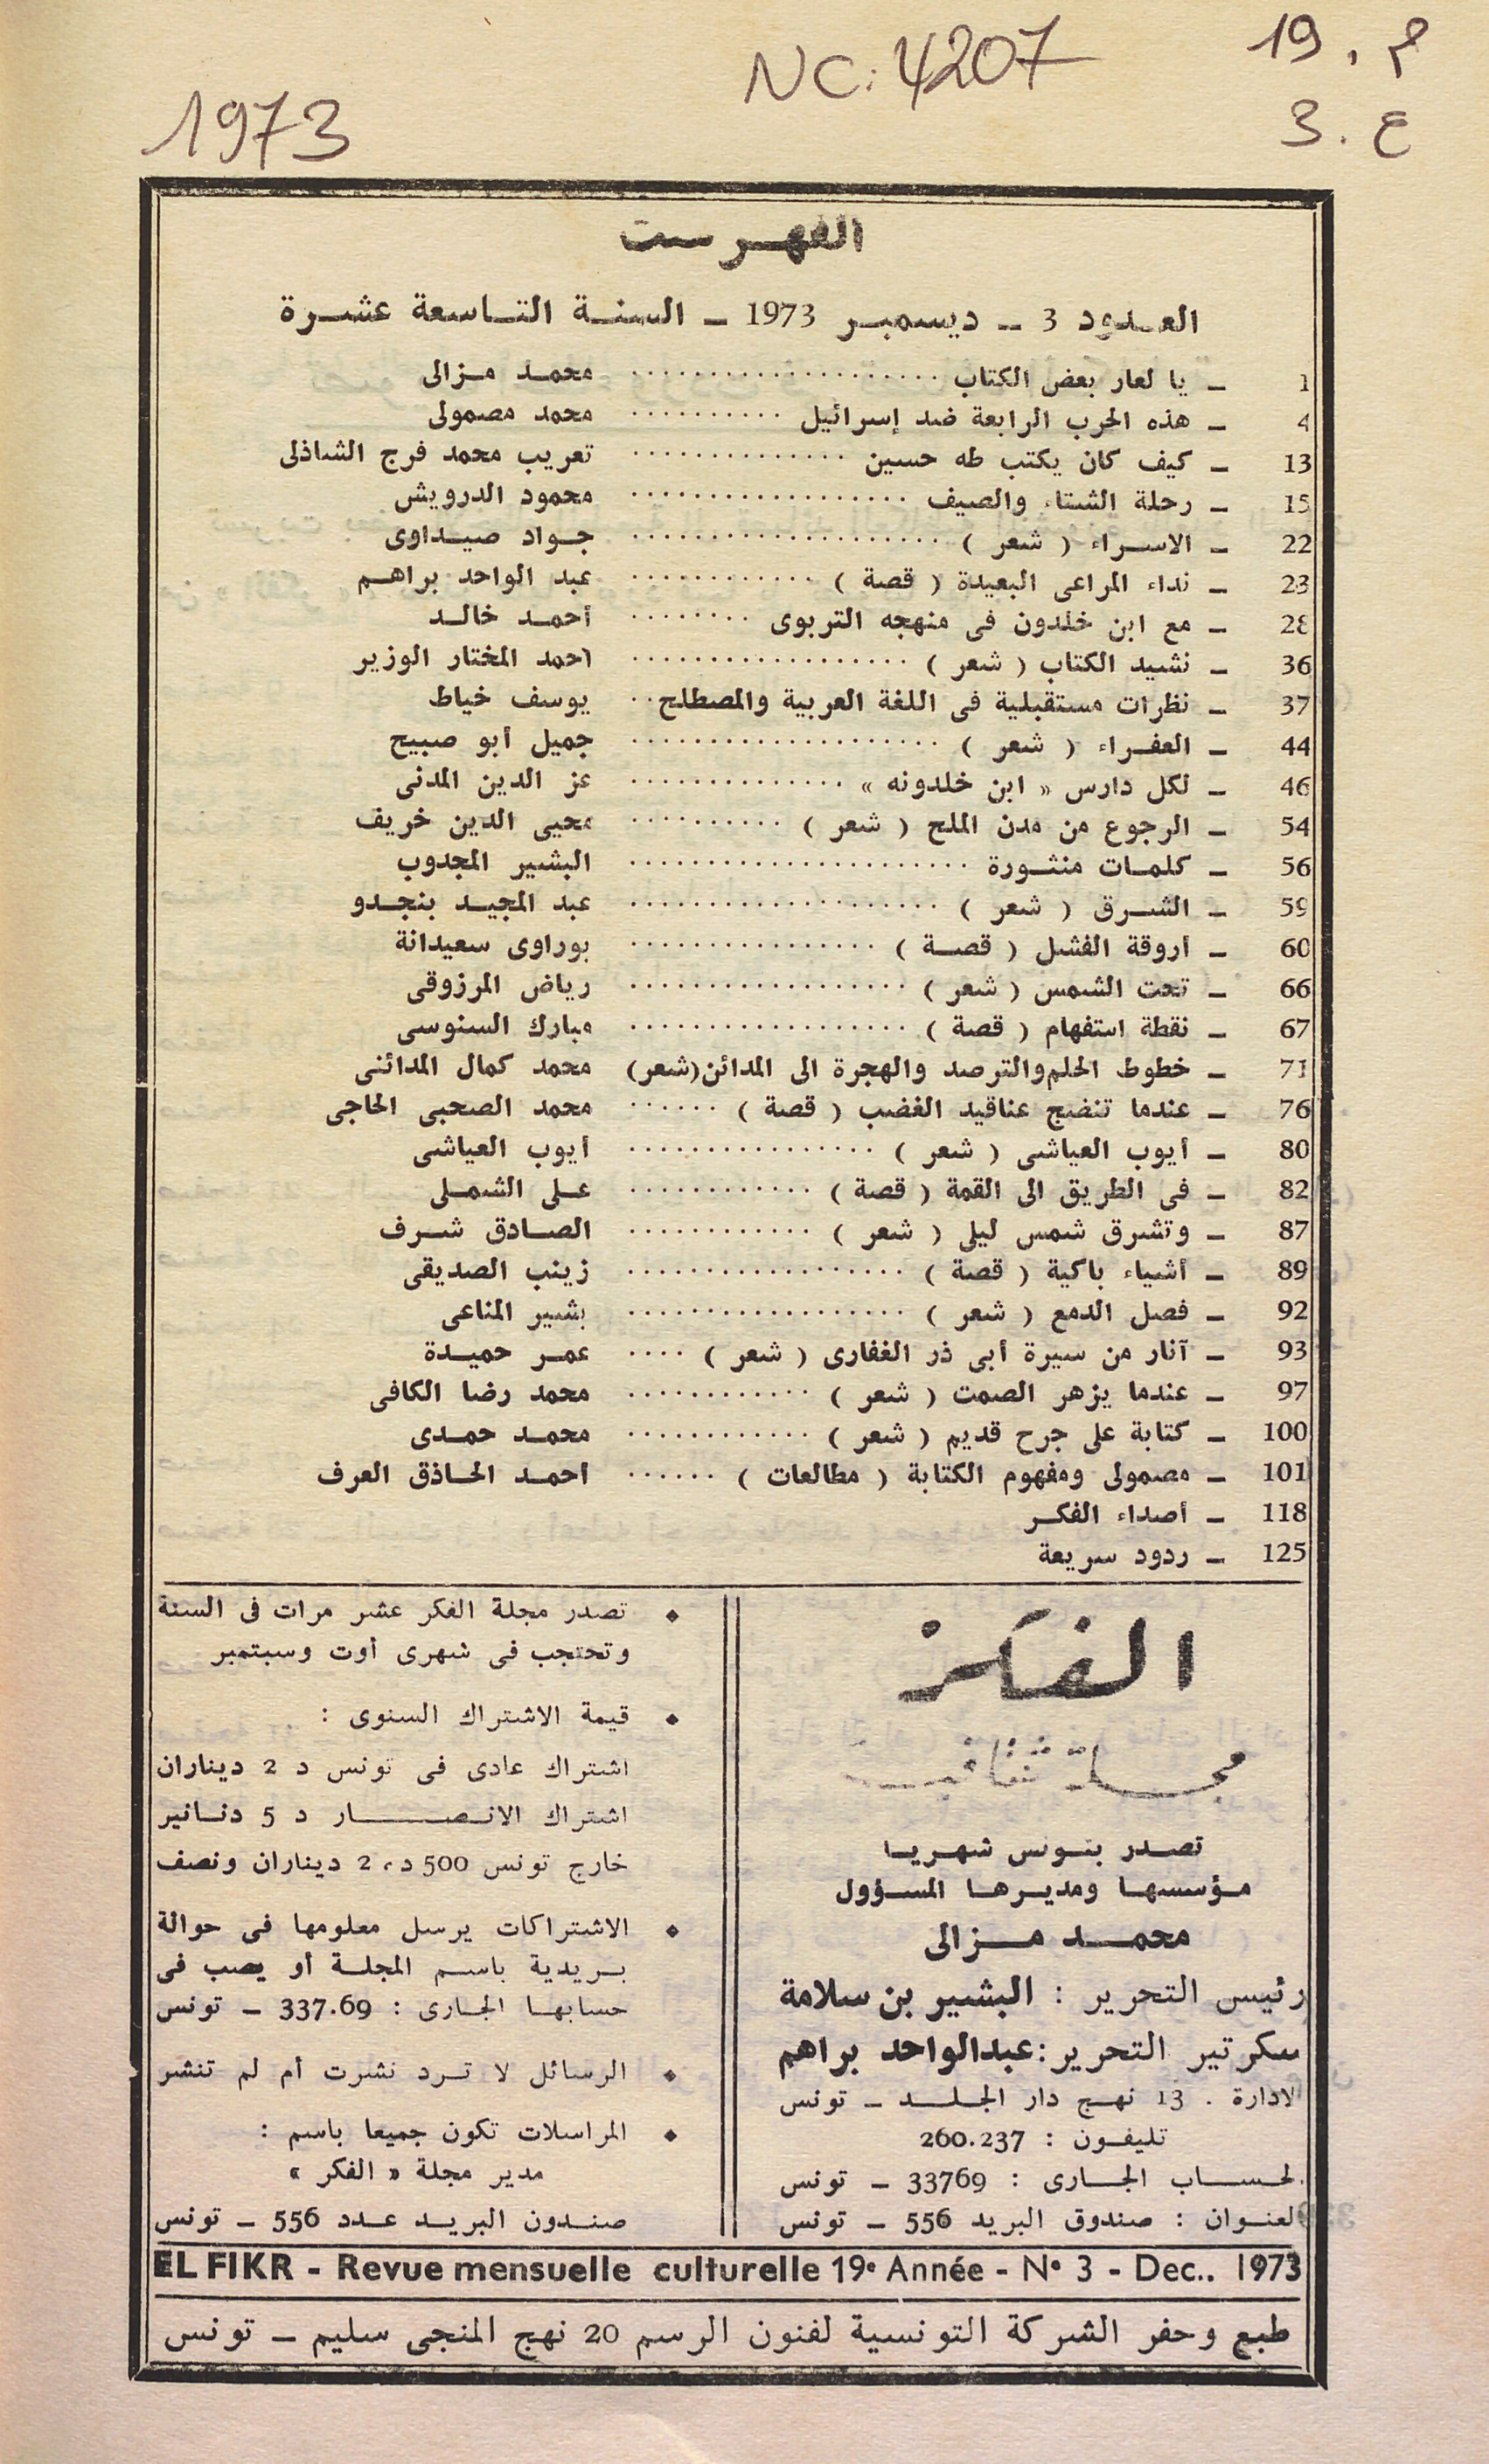 19 . م
NC: 4207
1973
3 . ع
الفهرست
العدود 3 ــ ديسمبر 1973 ــ السنة التاسعة عشرة
1 ــ يا لعار بعض الكتاب .................... محمد مزالى
4 ــ هذه الحرب الرابعة ضد إسرائيل .......... محمد مصمولى
13 ــ كيف كان يكتب طه حسين .............. تعريب محمد فرج الشاذلى
15 ــ رحلة الشتاء والصيف .................. محمود الدرويش
22 ــ الاسراء ( شعر ) .................... جواد صيداوى
23 ــ نداء المراعى البعيدة ( قصة ) ............ عبد الواحد براهم
28 ــ مع ابن خلدون فى منهجه التربوى ........ أحمد خالد
36 ــ نشيد الكتاب ( شعر ) .................. احمد المختار الوزير
37 ــ نظرات مستقبلية فى اللغة العربية والمصطلح .. يوسف خياط
44 ــ العفراء ( شعر ) .................... جميل أبو صبيح
46 ــ لكل دارس « ابن خلدونه » .............. عز الدين المدنى
54 ــ الرجوع من مدن الملح ( شعر ) .......... محيى الدين خريف
56 ــ كلمات منثورة ...................... البشير المجدوب
59 ــ الشرق ( شعر ) .................... عبد المجيد بنجدو
60 ــ أروقة الفشل ( قصة ) ................ بوراوى سعيدانة
66 ــ تحت الشمس ( شعر ) .................. رياض المرزوقى
67 ــ نقطة استفهام ( قصة ) .................. مبارك السنوسى
71 ــ خطوط الحلم والترصد والهجرة الى المدائن (شعر) محمد كمال المدائنى
76 ــ عندما تنضج عناقيد الغضب ( قصة ) ...... محمد الصحبى الحاجى
80 ــ أيوب العياشى ( شعر ) ................ أيوب العياشى
82 ــ فى الطريق الى القمة ( قصة ) ............ على الشملى
87 ــ وتشرق شمس ليلى ( شعر ) ............ الصادق شرف
89 ــ أشياء باكية ( قصة ) .................. زينب الصديقى
92 ــ فصل الدمع ( شعر ) .................. بشير المناعى
93 ــ آثار من سيرة أبى ذر الغفارى ( شعر ) .... عمر حميدة
97 ــ عندما يزهر الصمت ( شعر ) ............ محمد رضا الكافى
100 ــ كتابة على جرح قديم ( شعر ) ............ محمد حمدى
101 ــ مصمولى ومفهوم الكتابة ( مطالعات ) ...... احمد الحاذق العرف
118 ــ أصداء الفكر
125 ــ ردود سريعة
الفكر
مجلة ثقافية
تصدر بتونس شهريا
مؤسسها ومديرها المسؤول
محمد مزالى
رئيس التحرير : البشير بن سلامة
سكرتير التحرير : عبدالواحد براهم
لادارة . 13 نهج دار الجلد ــ تونس
تليفون : 260.237
لحساب الجارى : 33769 ــ تونس
لعنوان : صندوق البريد 556 ــ تونس
♦ تصدر مجلة الفكر عشر مرات فى السنة
وتحتجب فى شهرى أوت وسبتمبر
♦ قيمة الاشتراك السنوى :
اشتراك عادى فى تونس د 2 ديناران
اشتراك الانصار د 5 دنانير
خارج تونس 500 د، 2 ديناران ونصف
♦ الاشتراكات يرسل معلومها فى حوالة
بريدية باسم المجلة أو يصب فى
حسابها الجارى : 337.69 ــ تونس
♦ الرسائل لا ترد نشرت أم لم تنشر
♦ المراسلات تكون جميعا باسم :
مدير مجلة « الفكر »
صندون البريد عدد 556 ــ تونس
EL FIKR - Revue mensuelle culturelle 19e Année - N° 3 - Dec.. 1973
طبع وحفر الشركة التونسية لفنون الرسم 20 نهج المنجى سليم ــ تونس